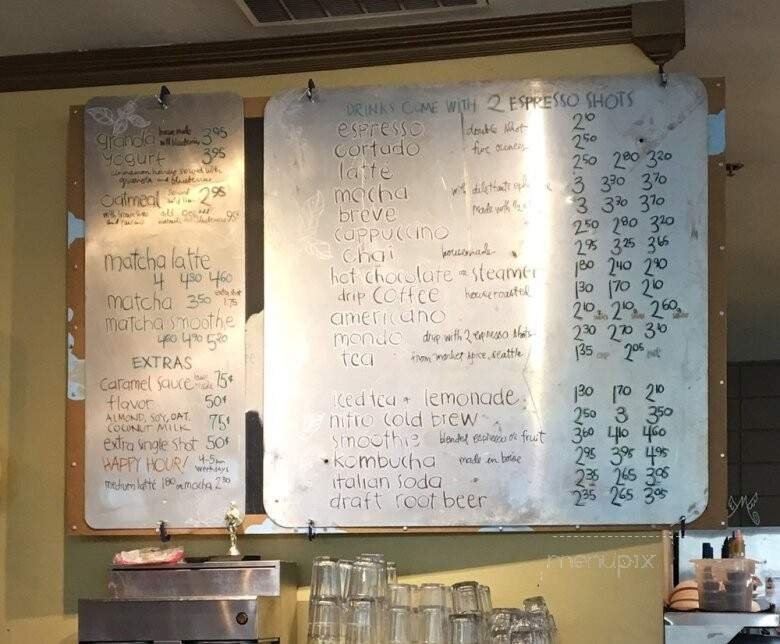 granola house made with blueberries 3.95
yogurt 3.95
cinnamon honey served with
granola and blueberries
oatmeal 2.95
matcha latte
4 4.30 4.60
matcha 3.50 extra shot 1.75
matcha smoothie
4.60 4.90 5.20
EXTRAS
caramel sauce house made 75¢
flavor 50¢
ALMOND, SOY, OAT,
COCONUT MILK 75¢
extra single shot 50¢
HAPPY HOUR! 4-5pm weekdays
medium latte 1.80 or mocha 2.30
DRINKS COME WITH 2 ESPRESSO SHOTS
espresso double shot 2.10
cortado five ounces 2.50
latte 2.50 2.80 3.20
mocha with dilettante 3 3.30 3.70
breve made with 1/2 3 3.30 3.70
cappuccino 2.50 2.80 3.20
chai housemade 2.95 3.25 3.65
hot chocolate or steamer 1.80 2.40 2.90
drip coffee house roasted 1.30 1.70 2.10
americano 2.10 2.10 2.60
mondo drip with 2 espresso shots 2.30 2.70 3.10
tea from market spice, seattle 1.35 cup 2.05 pot
iced tea + lemonade 1.30 1.70 2.10
nitro cold brew 2.50 3 3.50
smoothie blended espresso or fruit 3.60 4.10 4.60
kombucha made in boise 2.95 3.95 4.95
italian soda 2.35 2.65 3.05
draft root beer 2.35 2.65 3.05
menupix